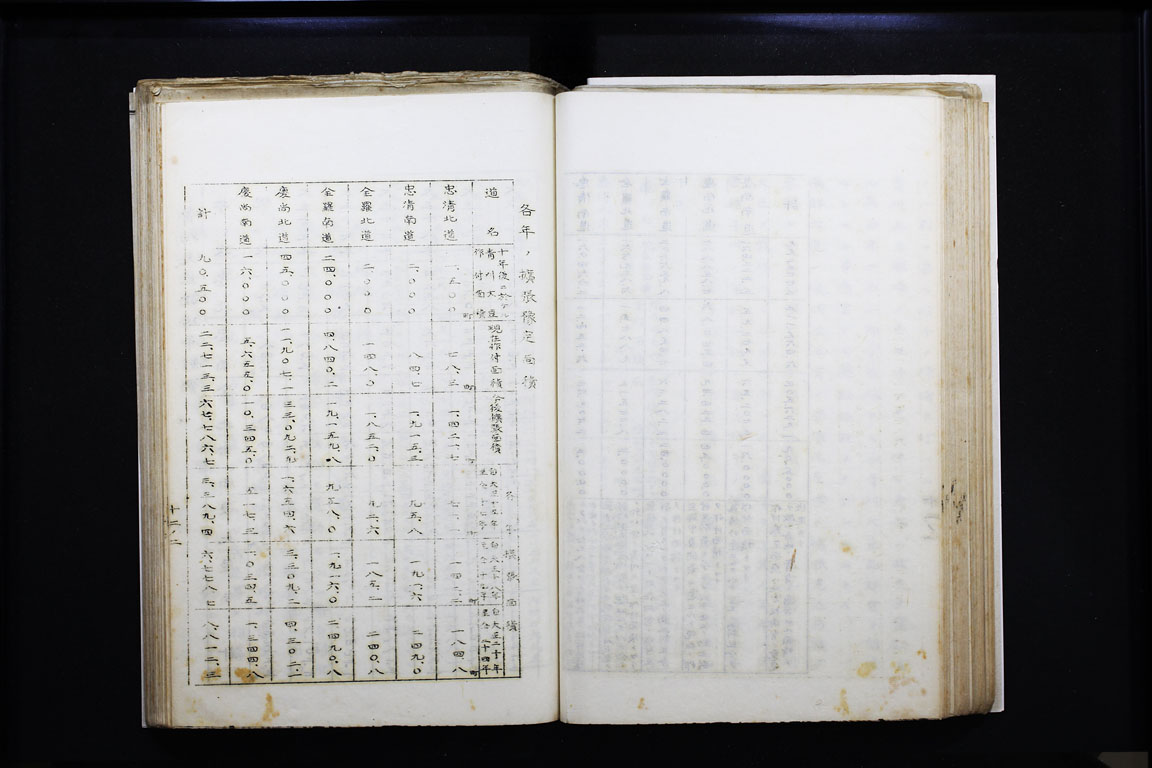 各年ノ擴張豫定面積
道名
十年後ニ於ケル
青刈大豆
作付面積
現在作付面積
今後擴張面積
各年擴張面積
忠清北道 一、五〇〇町 七八、三町 一、四二一、七町 七一、一町 一四二、二町 一八四、八町
忠清南道 二、〇〇〇 八四、七 一、九一五、三 九五、八 一九一、六 二四九、〇
全羅北道 二、〇〇〇 一四八、〇 一、八五二、〇 九二、六 一八五、二 二四〇、八
全羅南道 二四、〇〇〇 四、八四〇、二 一九、一五九、八 九五八、〇 一、九一六、〇 二、四九〇、八
慶尚北道 四五、〇〇〇 一一、九〇七、一 三三、〇九二、九 一、六五四、六 三、三〇九、二 四、三〇二、一
慶尚南道 一六、〇〇〇 五、六五五、〇 一〇、三四五、〇 五一七、三 一、〇三四、五 一、三四四、八
計 九〇、五〇〇 二二、七一三、三 六七、七八六、七 三、三八九、四 六、七七八、七 八、八一二、三